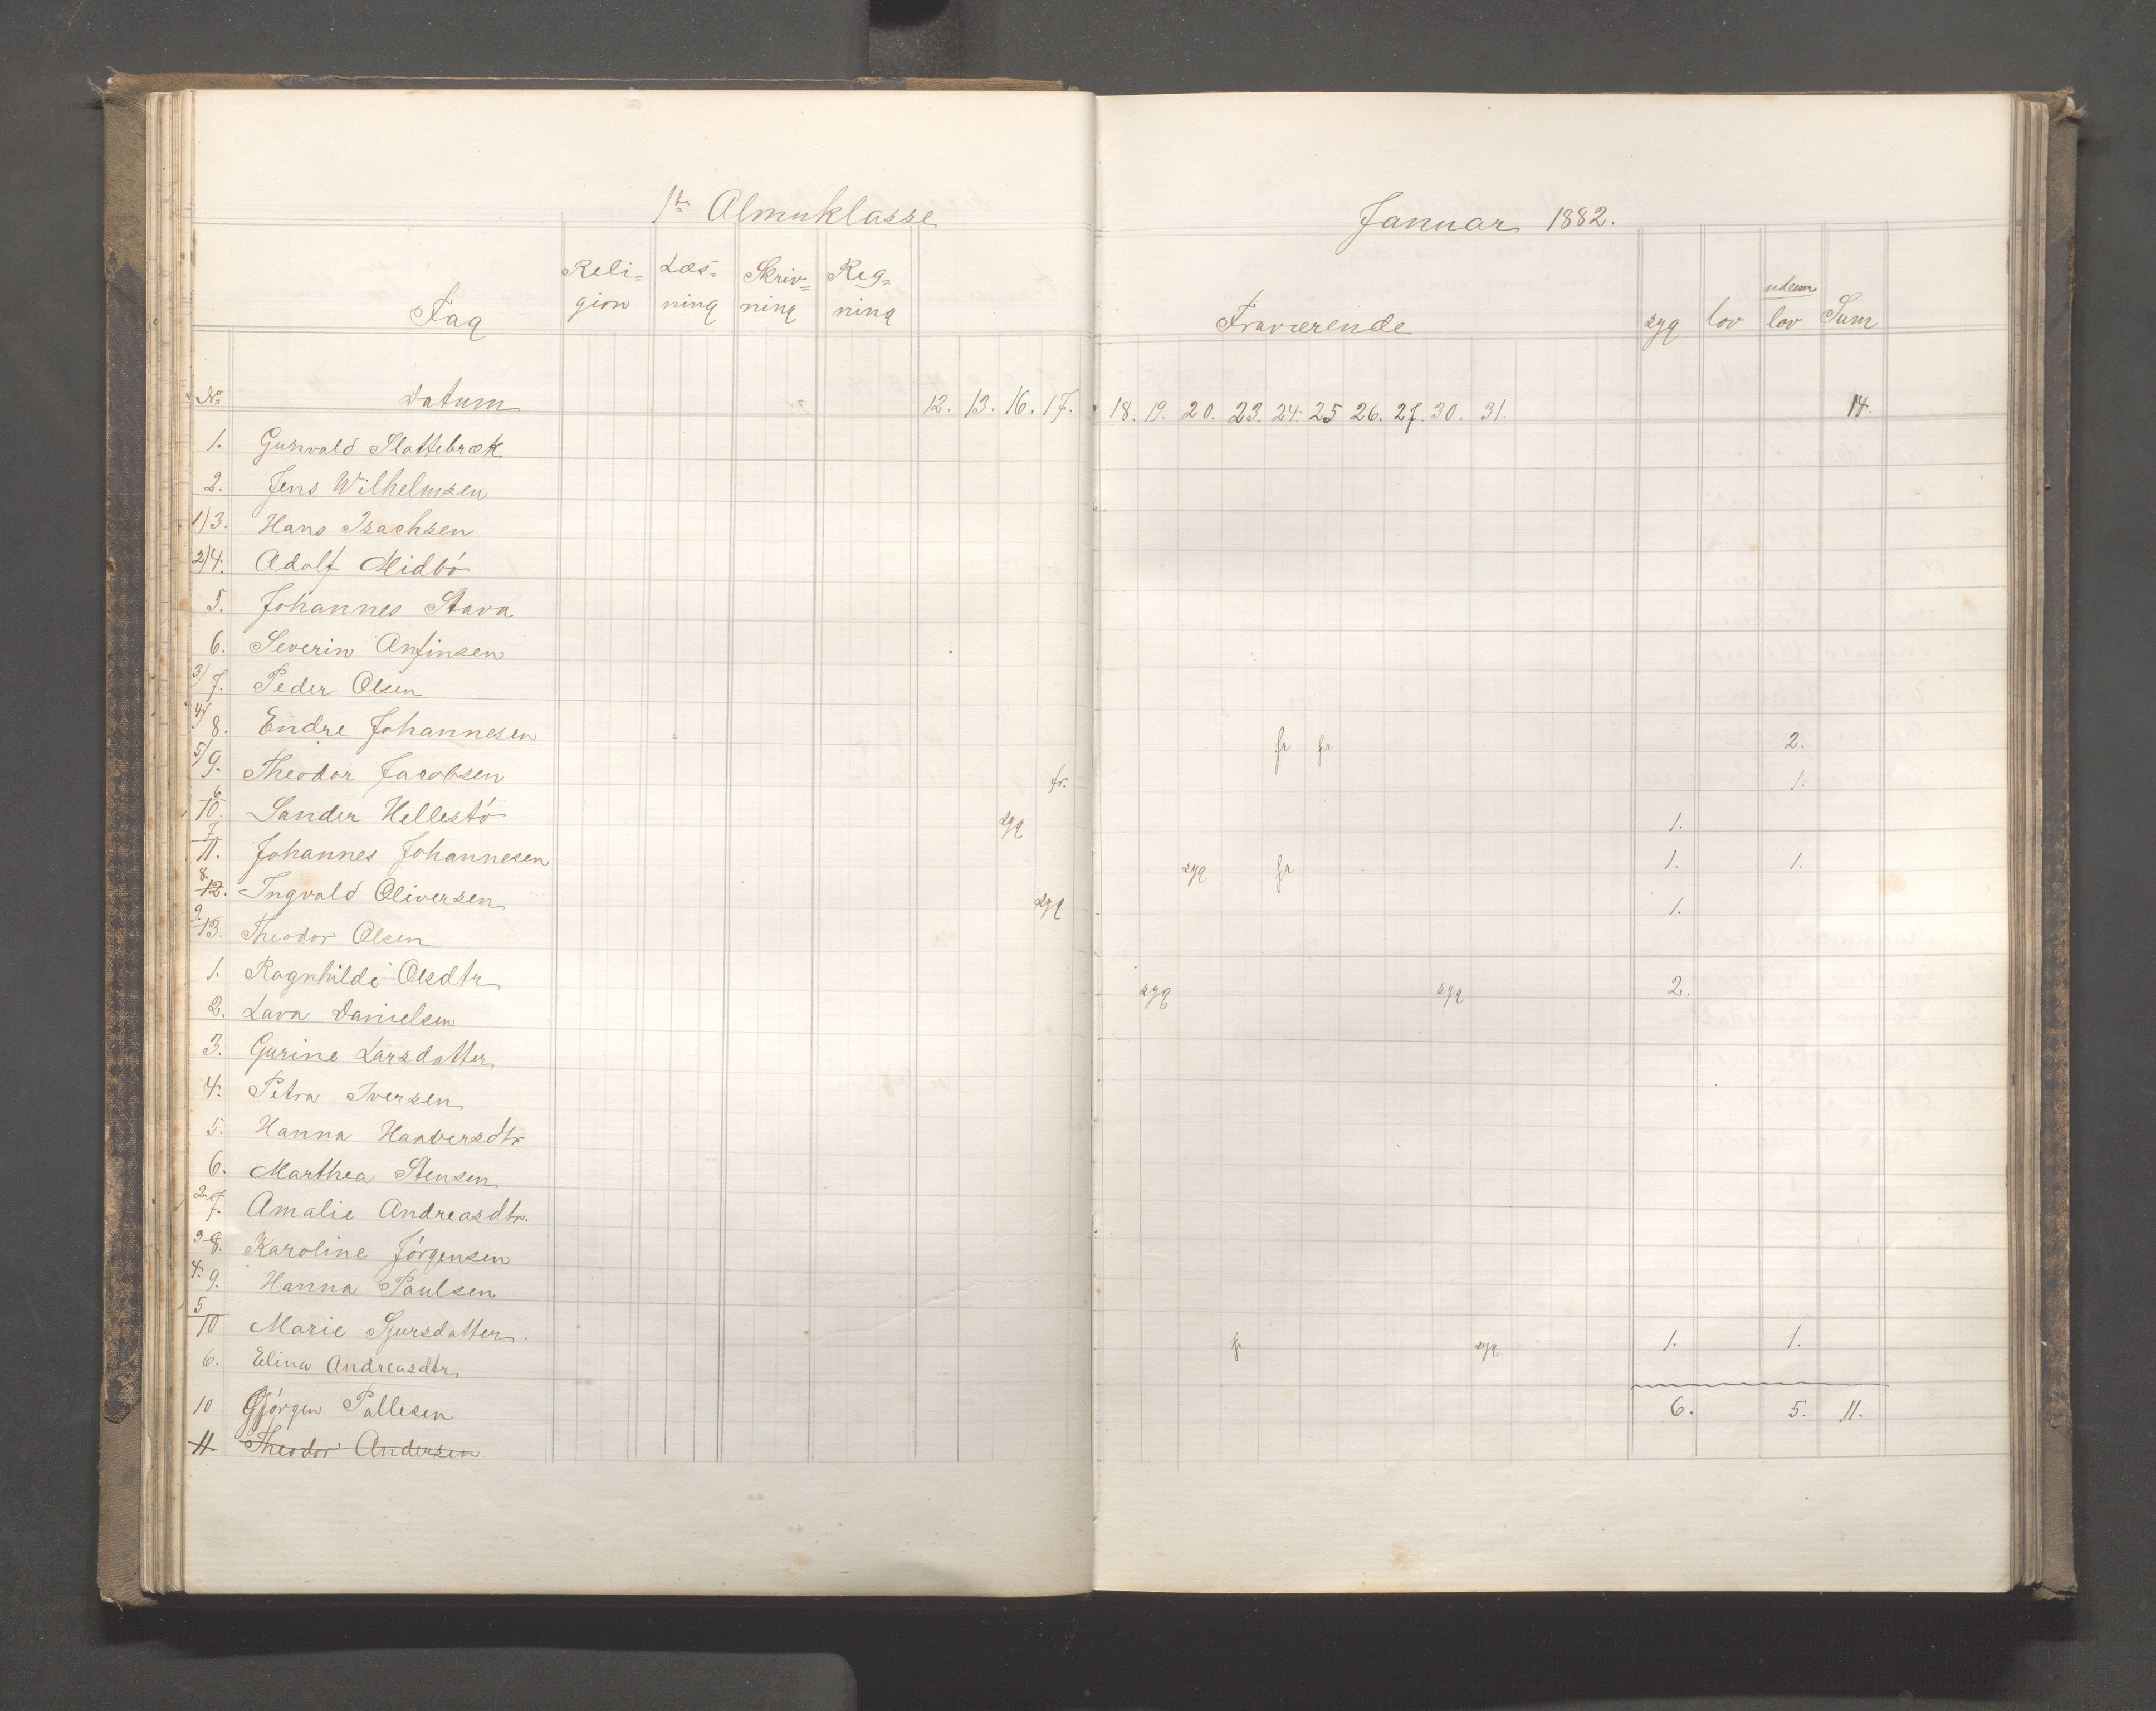 1ste Almuklasse
Januar 1882.
Fag Reli= gion Læs= ning Skriv= ning Reg= ning Fraværende syg lov uden lov Sum
No Datum 12. 13. 16. 17. 18. 19. 20. 23. 24. 25 26. 27. 30. 31. 14.
1. Gunvald Slattebræk
2. Jens Wilhelmsen
1) 3. Hans Isachsen
2) 4. Adolf Midbö
5. Johannes Stava
6. Severin Anfinsen
3/ 7. Peder Olsen
4/ 8. Endre Johannesen fr fr 2.
5/ 9. Theodor Jacobsen fr. 1.
6 10. Sander Hellestö syg 1.
7 11. Johannes Johannesen syg fr 1. 1.
8. 12. Ingvald Oliversen syg 1.
9. 13. Theodor Olsen
1. Ragnhilde Olsdtr syg syg 2.
2. Lava Danielsen
3. Gurine Larsdatter
4. Petra Iversen
5. Hanna Haaversdtr
6. Marthea Stensen
2. 7. Amalie Andreasdtr.
3 8. Karoline Jörgensen
4. 9. Hanna Paulsen
5 10 Marie Sjursdatter. fr syg. 1. 1.
6. Elina Andreasdtr
10 Gjörgen Pallesen 6. 5. 11.
11 Theodor Andersen